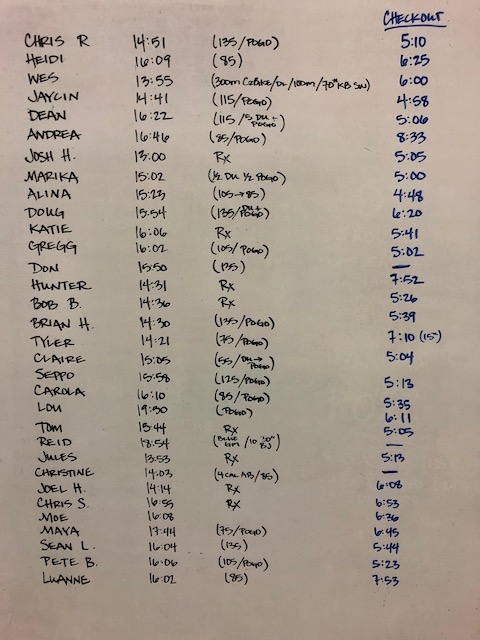 CHECKOUT
CHRIS R 14:51 (135/POGO) 5:10
HEIDI 16:09 (85) 6:25
WES 13:55 (300m C2BIKE/DL/100m/70# KB SW) 6:00
JAYLIN 14:41 (115/POGO) 4:58
DEAN 16:22 (115/5 DU + POGO) 5:06
ANDREA 16:46 (85/POGO) 8:33
JOSH H. 13:00 RX 5:05
MARIKA 15:02 (½ DU ½ POGO) 5:00
ALINA 15:23 (105→85) 4:48
DOUG 15:54 (135/DU + POGO) 6:20
KATIE 16:06 RX 5:41
GREGG 16:02 (105/POGO) 5:02
DON 15:50 (135) —
HUNTER 14:31 RX 7:52
BOB B. 14:36 RX 5:26
BRIAN H. 14:30 (135/POGO) 5:39
TYLER 14:21 (75/POGO) 7:10 (15#)
CLAIRE 15:05 (55/DU→POGO) 5:04
SEPPO 15:58 (125/POGO) 5:13
CAROLA 16:10 (85/POGO) 5:35
LOU 19:30 (POGO) 6:11
TOM 15:44 RX 5:05
REID 18:54 (BLUE /10 20" BJ) —
JULES 13:53 RX 5:13
CHRISTINE 14:03 (4 CAL AB/85) —
JOEL H. 14:14 RX 6:08
CHRIS S. 16:55 RX 6:53
MOE 16:08 6:36
MAYA 17:44 (75/POGO) 6:45
SEAN L. 16:04 (135) 5:44
PETE B. 16:06 (105/POGO) 5:23
LUANNE 16:02 (85) 7:53